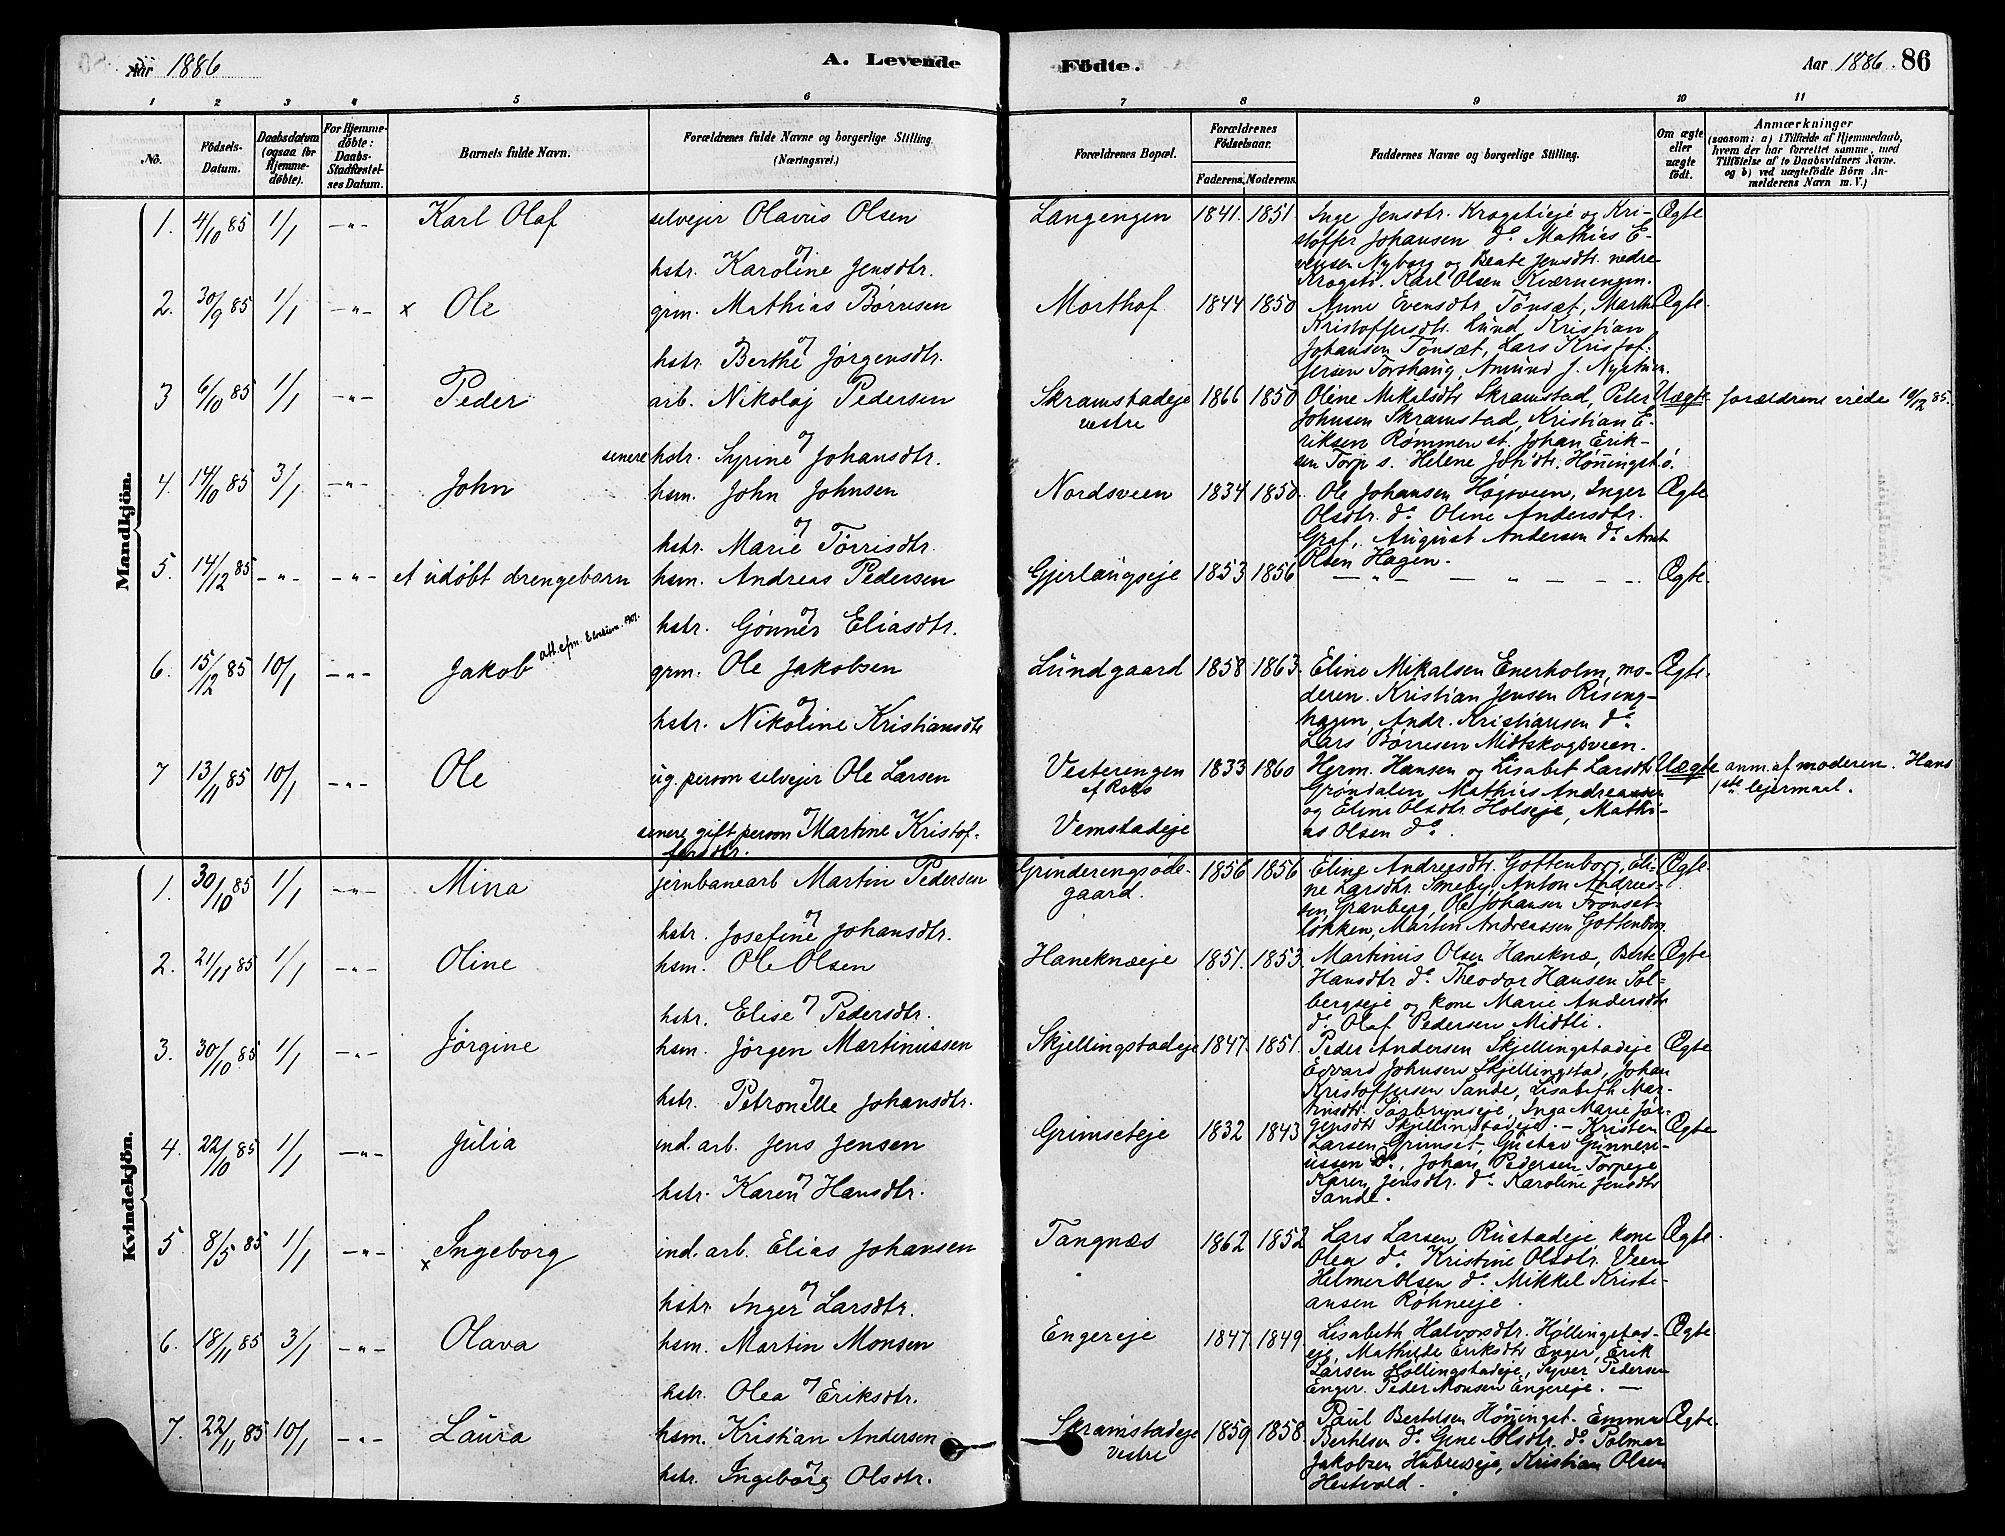 Aar 1886
A. Levende
Födte.
Aar 1886. 86
1 2 3 4 5 6 7 8 9 10 11
No. Födsels-Datum. Daabsdatum (ogsaa for Hjemme-döbte). For Hjemme-döbte: Daabs-Stadfæstel-ses Datum. Barnets fulde Navn. Forældrenes fulde Navne og borgerlige Stilling (Næringsvei.)
Forældrenes Bopæl. Forældrenes Födselsaar. Faderens. Moderens. Faddernes Navne og borgerlige Stilling. Om ægte eller uægte födt. Anmærkninger (saasom: a) i Tilfælde af Hjemmedaab, hvem der har forrettet samme, med Tilföielse af to Daabsvidners Navne. og b) ved uægtefödte Börn An-melderens Navn m. V.)
Mandkjön.
1. 4/10 85 1/1 -"- Karl Olaf selvejer Olavus Olsen
og
hstr. Karoline Jensdtr.
Langengen 1841. 1851. Inge Jensdtr. Krogstieje og Kri- Ægte
stoffer Johansen do. Mathias E-
vensen Nyborg og Beate Jensdtr. nedre
Krogstd. Karl Olsen Kværnengen.
2. 30/9 85 1/1 -"- x Ole grm. Mathias Børresen
og
hstr. Berthe Jørgensdtr.
Morthof 1844 1850 Anne Evensdtr. Tønsæt, Marthe Ægte.
Kristoffersdtr. Lund, Kristian
Johansen Tønsæt, Lars Kristof-
fersen Torshaug, Amund J. Nyetun.
3 6/10 85 1/1 -"- Peder arb. Nikolaj Pedersen
og
senere hstr. Syrine Johansdtr.
Skramstadeje vestre 1866 1850 Oline Mikalsdtr Skramstad, Peter Uægte forældrene viede 10/12 85.
Johnsen Skramstad, Kristian E-
riksen Rømmen st. Johan Erik-
sen Torp s. Helene Joh'dtr. Hønningst. ø.
4. 14/10 85 3/1 -"- John hsm. John Johnsen
og
hstr. Marie Tørrisdtr.
Nordsveen 1834 1850. Ole Johansen Høgsveen, Inger Ægte
Olsdtr. do. Oline Andersdtr.
Graf, August Andersen do. Arnt
Olsen Hagen.
5. 14/12 85 -"- -"- et udøbt drengebarn hsm. Andreas Pedersen
og
hstr. Gønner Eliasdtr.
Gjerlaugseje 1853 1856 - " - - " - - - Ægte.
6. 15/12 85 10/1 -"- Jakob grm. Ole Jakobsen
og
hstr. Nikoline Kristiansdtr
Lundgaard 1858 1863. Eline Mikalsen Enerholm, mo- Ægte.
deren. Kristian Jensen Riseng-
hagen, Andr. Kristiansen do.
Lars Børresen Midtskogsveen.
7 13/11 85 10/1 -"- Ole ug. person selvejer Ole Larsen
og
senere gift person Martine Kristof-
fersdtr.
Vesterengen af Roko 1833 1860 Herm. Hansen og Lisabet Larsdtr Uægte anm. af moderen. Hans
Vemstadeje
Grøndalen, Mathias Andreassen 1ste lejermaal.
og Eline Olsdtr. Holseje, Mathi-
as Olsen do.
Kvindekjön.
1. 30/10 85 1/1 -"- Mina jernbanearb Martin Pedersen
og
hstr. Josefine Johansdtr.
Grinderengsøde-gaard. 1856 1856 Eline Andreasdtr. Gottenborg, Eli- Ægte.
ne Larsdtr. Smeby, Anton Andreas-
sen Granberg, Ole Johansen Trønset-
løkken, Martin Andreassen Gottenborg.
2. 21/11 85 1/1 -"- Oline hsm. Ole Olsen
og
hstr. Elise Pedersdtr.
Haneknæeje 1851. 1853. Martinus Olsen Haneknæ, Berte Ægte
Hansdtr do. Theodor Hansen Sol-
bergseje og kone Marie Andersdtr
do. Olaf Pedersen Midtli.
3. 30/10 85 1/1 -"- Jørgine hsm. Jørgen Martinussen
og
hstr. Petronelle Johansdtr.
Skjellingstadeje 1847. 1851. Peder Andersen Skjellingstadeje Ægte
Edvard Johnsen Skjellingstad, Johan
Kristoffersen Sande, Lisabeth Mar-
tinsdtr. Sagbrynseje, Inga Marie Jør-
gensdtr Skjellingstadeje. -
4. 22/10 85 1/1 -"- Julia ind. arb. Jens Jensen
og
hstr. Karen Hansdtr.
Grimseteje 1832 1843 Kristen Ægte
Larsen Grimset, Gustav Gunneri-
ussen do, Johan Pedersen Torpeje
Karen Jensdtr. do. Karoline Jensdtr
Sande.
5 8/5 85 1/1 -"- x Ingeborg ind. arb. Elias Johansen
og
hstr. Inger Larsdtr.
Tangnæs 1862 1852 Lars Larsen, Rustadeje kone Ægte.
Olea do. Kristine Olsdtr. Veen
Helmer Olsen do. Mikkel Kristi-
ansen Røhneeje.
6. 18/11 85 3/1 -"- Olava hsm. Martin Monsen
og
hstr. Olea Eriksdtr.
Engereje 1847 1849 Lisabeth Halvorsdtr. Høllingstad- Ægte
eje, Mathilde Eriksdtr Enger, Erik
Larsen Høllingstadeje, Syver Pedersen
Enger. Peder Monsen Engereje. -
7. 22/11 85 10/1 -"- Laura hsm. Kristian Andersen
og
hstr. Ingeborg Olsdtr.
Skramstadeje vestre 1859 1858. Paul Bertelsen Hønningst. Emma Ægte.
Bertelsen do. Gine Olsdtr. do. Palmar
Jakobsen Hubreseje, Kristian Olsen
Hestvold.